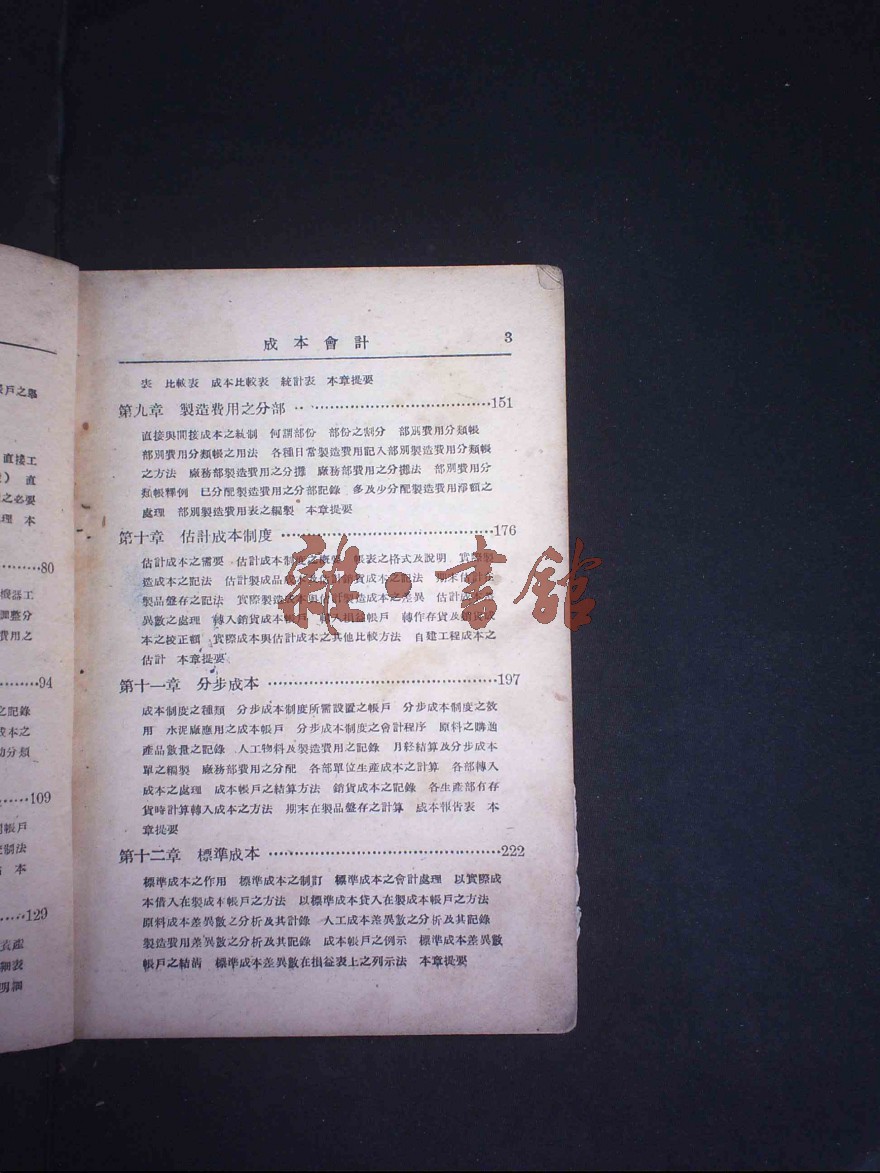 帳戶之舉
直接工
直
之必要
理 本
80
機器工
調整分
費用之
94
之記錄
成本之
動分類
109
帳戶
度制法
本
129
細表
明細
成本會計 3
表 比較表 成本比較表 統計表 本章提要
第九章 製造費用之分部 151
直接與間接成本之統制 何謂部份 部份之割分 部別費用分類帳
部別費用分類帳之用法 各種日常製造費用記入部別製造費用分類帳
之方法 廠務部製造費用之分攤 廠務部費用之分攤法 部別費用分
類帳釋例 已分配製造費用之分部記錄 多及少分配製造費用淨額之
處理 部別製造費用表之編製 本章提要
第十章 估計成本制度 176
估計成本之需要 估計成本制度之概要 帳表之格式及說明 實際製
造成本之記法 估計製成品成本及估計銷貨成本之記法 期末估計在
製品盤存之記法 實際製造成本與估計製造成本之差異 估計成本差
異數之處理 轉入銷貨成本帳戶 轉入損益帳戶 轉作存貨及銷貨成
本之校正額 實際成本與估計成本之其他比較方法 自建工程成本之
估計 本章提要
第十一章 分步成本 197
成本制度之種類 分步成本制度所需設置之帳戶 分步成本制度之效
用 水泥廠應用之成本帳戶 分步成本制度之會計程序 原料之購進
產品數量之記錄 人工物料及製造費用之記錄 月終結算及分步成本
單之編製 廠務部費用之分配 各部單位生產成本之計算 各部轉入
成本之處理 成本帳戶之結算方法 銷貨成本之記錄 各生產部有存
貨時計算轉入成本之方法 期末在製品盤存之計算 成本報告表 本
章提要
第十二章 標準成本 222
標準成本之作用 標準成本之制訂 標準成本之會計處理 以實際成
本借入在製成本帳戶之方法 以標準成本貸入在製成本帳戶之方法
原料成本差異數之分析及其計錄 人工成本差異數之分析及其記錄
製造費用差異數之分析及其記錄 成本帳戶之例示 標準成本差異數
帳戶之結清 標準成本差異數在損益表上之列示法 本章提要
雜·書館